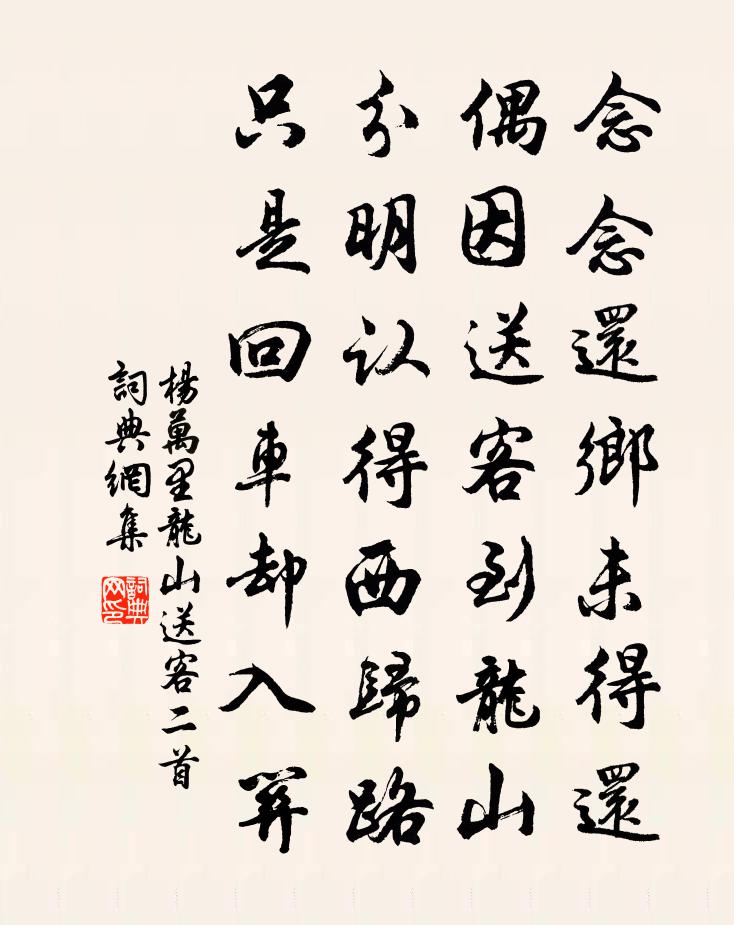 念念還鄉未得還
偶因送客到龍山
分明认得西歸路
只是回車却入關
楊萬里龍山送客二首
詞典網集
詞典网印